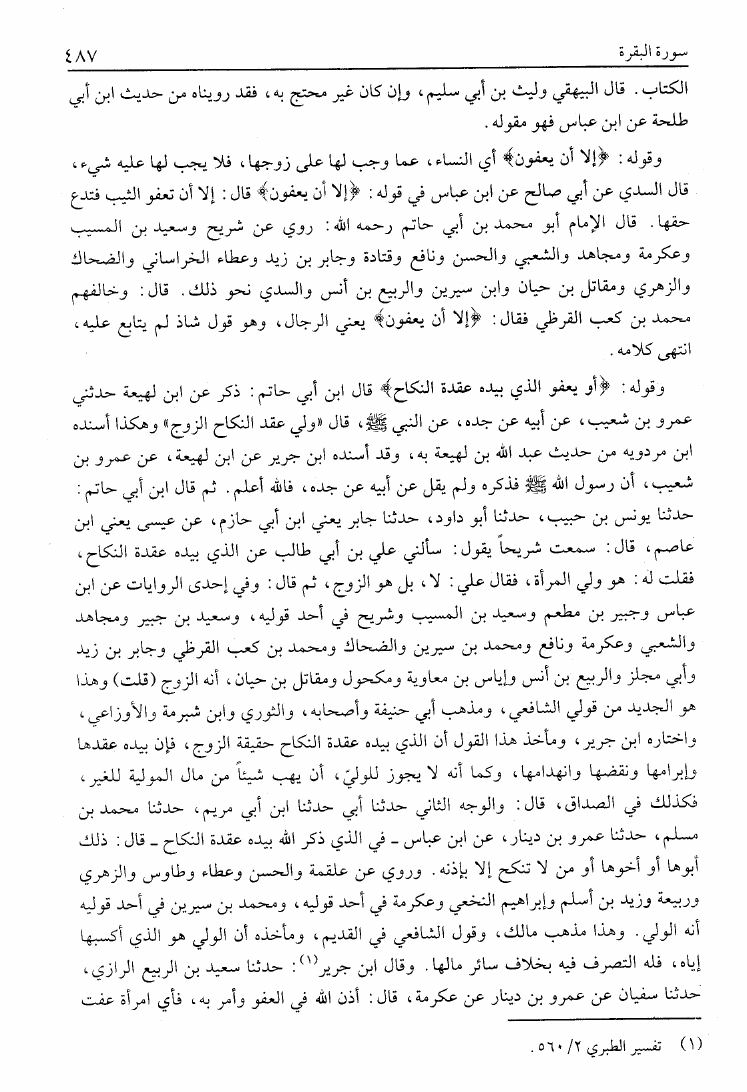 سورة البقرة
٤٨٧
الكتاب. قال البيهقي وليث بن أبي سليم، وإن كان غير محتج به، فقد رويناه من حديث ابن أبي
طلحة عن ابن عباس فهو مقوله.
وقوله: ﴿إلا أن يعفون﴾ أي النساء، عما وجب لها على زوجها، فلا يجب لها عليه شيء،
قال السدي عن أبي صالح عن ابن عباس في قوله: ﴿إلا أن يعفون﴾ قال: إلا أن تعفو الثيب فتدع
حقها. قال الإمام أبو محمد بن أبي حاتم رحمه الله: روي عن شريح وسعيد بن المسيب
وعكرمة ومجاهد والشعبي والحسن ونافع وقتادة وجابر بن زيد وعطاء الخراساني والضحاك
والزهري ومقاتل بن حيان وابن سيرين والربيع بن أنس والسدي نحو ذلك. قال: وخالفهم
محمد بن كعب القرظي فقال: ﴿إلا أن يعفون﴾ يعني الرجال، وهو قول شاذ لم يتابع عليه،
انتهى كلامه.
وقوله: ﴿أو يعفو الذي بيده عقدة النكاح﴾ قال ابن أبي حاتم: ذكر عن ابن لهيعة حدثني
عمرو بن شعيب، عن أبيه عن جده، عن النبي ﷺ، قال «ولي عقد النكاح الزوج» وهكذا أسنده
ابن مردويه من حديث عبد الله بن لهيعة به، وقد أسنده ابن جرير عن ابن لهيعة، عن عمرو بن
شعيب، أن رسول الله ﷺ فذكره ولم يقل عن أبيه عن جده، فالله أعلم. ثم قال ابن أبي حاتم:
حدثنا يونس بن حبيب، حدثنا أبو داود، حدثنا جابر يعني ابن أبي حازم، عن عيسى يعني ابن
عاصم، قال: سمعت شريحاً يقول: سألني علي بن أبي طالب عن الذي بيده عقدة النكاح،
فقلت له: هو ولي المرأة، فقال علي: لا، بل هو الزوج، ثم قال: وفي إحدى الروايات عن ابن
عباس وجبير بن مطعم وسعيد بن المسيب وشريح في أحد قوليه، وسعيد بن جبير ومجاهد
والشعبي وعكرمة ونافع ومحمد بن سيرين والضحاك ومحمد بن كعب القرظي وجابر بن زيد
وأبي مجلز والربيع بن أنس وإياس بن معاوية ومكحول ومقاتل بن حيان، أنه الزوج (قلت) وهذا
هو الجديد من قولي الشافعي، ومذهب أبي حنيفة وأصحابه، والثوري وابن شبرمة والأوزاعي،
واختاره ابن جرير، ومأخذ هذا القول أن الذي بيده عقدة النكاح حقيقة الزوج، فإن بيده عقدها
وإبرامها ونقضها وانهدامها، وكما أنه لا يجوز للوليّ، أن يهب شيئاً من مال المولية للغير،
فكذلك في الصداق، قال: والوجه الثاني حدثنا أبي حدثنا ابن أبي مريم، حدثنا محمد بن
مسلم، حدثنا عمرو بن دينار، عن ابن عباس ـ في الذي ذكر الله بيده عقدة النكاح ـ قال: ذلك
أبوها أو أخوها أو من لا تنكح إلا بإذنه. وروي عن علقمة والحسن وعطاء وطاوس والزهري
وربيعة وزيد بن أسلم وإبراهيم النخعي وعكرمة في أحد قوليه، ومحمد بن سيرين في أحد قوليه
أنه الولي. وهذا مذهب مالك، وقول الشافعي في القديم، ومأخذه أن الولي هو الذي أكسبها
إياه، فله التصرف فيه بخلاف سائر مالها. وقال ابن جرير(١): حدثنا سعيد بن الربيع الرازي،
حدثنا سفيان عن عمرو بن دينار عن عكرمة، قال: أذن الله في العفو وأمر به، فأي امرأة عفت
(١) تفسير الطبري ٢/ ٥٦٠.